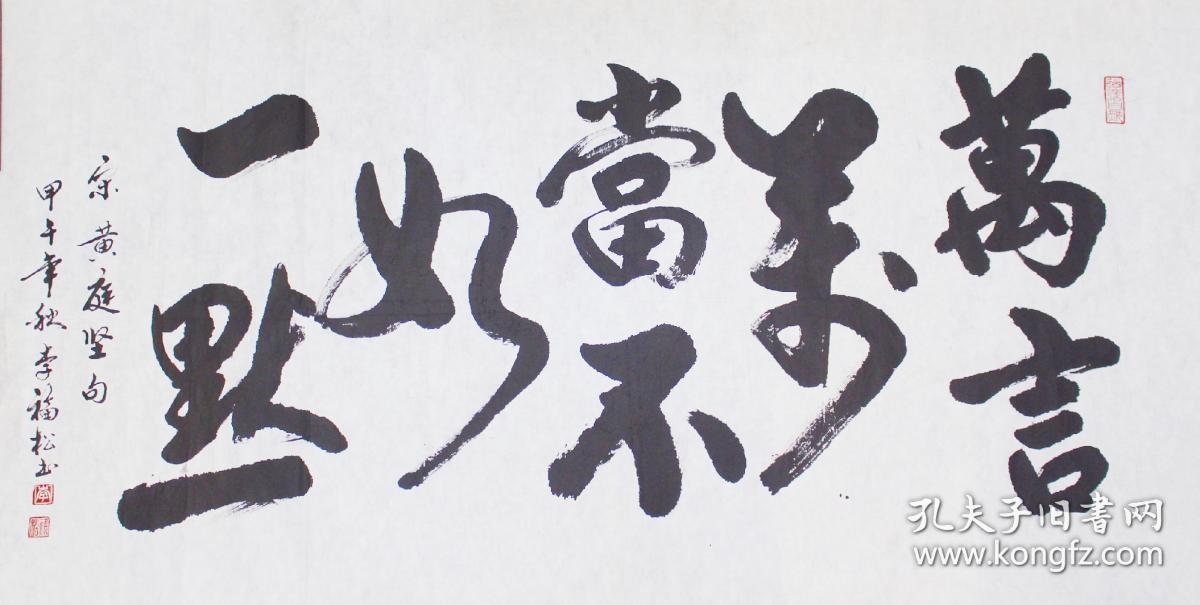 萬言
萬
當不
如
一默
宋黄庭坚句
甲午年秋李福松书
孔夫子旧書网
www.kongfz.com